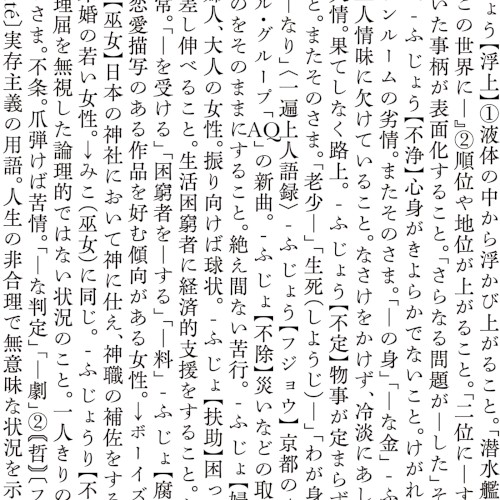 ょう【浮上】①液体の中から浮かび上がること。「潜水艦
この世界に―』②順位や地位が上がること。「二位に―す
いた事柄が表面化すること。「さらなる問題が―した」そ
- ふ じょう【不浄】心身がきよらかでないこと。けがれ
ンルームの劣情。またそのさま。「―の身」「―な金」 - ふ
人情味に欠けていること。なさけをかけず、冷淡にあし
情。果てしなく路上。 - ふ じょう【不定】物事が定まらず
と。またそのさま。「老少―」「生死(しようじ)―」「わが身
―なり」〈一遍上人語録〉 - ふ じょう【フジョウ】京都の
ル・グループ「AQ」の新曲。 - ふ じょ【不除】災いなどの取
のをそのままにすること。絶え間ない苦行。 - ふ じょ【婦
人、大人の女性。振り向けば球状。 - ふ じょ【扶助】困っ
差し伸べること。生活困窮者に経済的支援をすること。
常。「―を受ける」「困窮者を―する」「―料」 - ふ じょ【腐
恋愛描写のある作品を好む傾向がある女性。↓ボーイズ
【巫女】日本の神社において神に仕え、神職の補佐をする
婚の若い女性。↓みこ(巫女)に同じ。 - ふ じょうり【不
理屈を無視した論理的ではない状況のこと。一人きりの
さま。不条。爪弾けば苦情。「―な判定」「―劇」②〘哲〙〔フ
te〕実存主義の用語。人生の非合理で無意味な状況を示